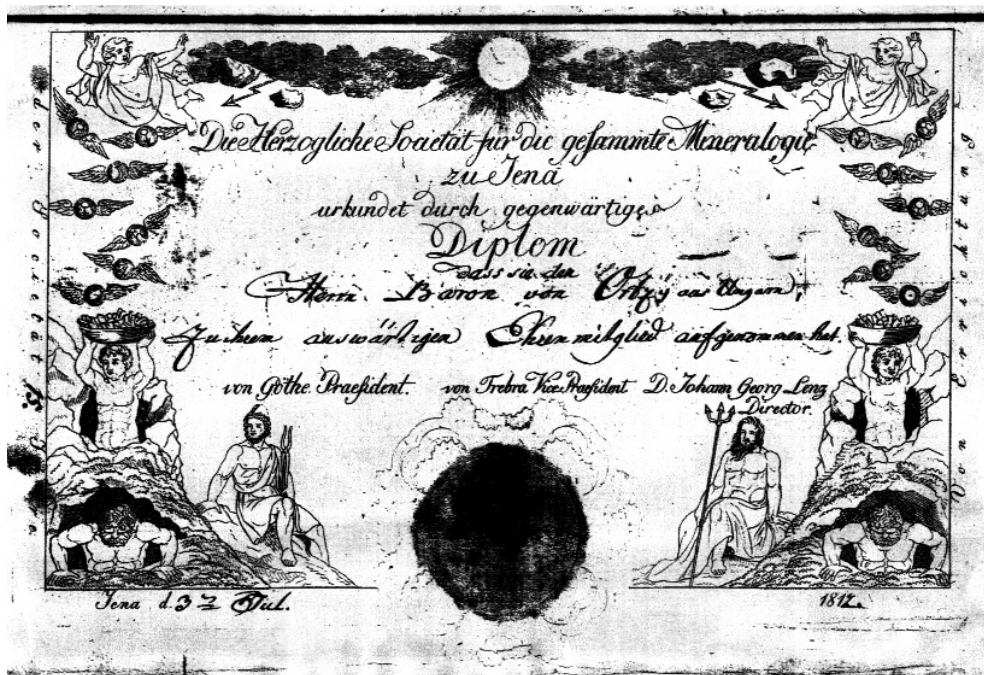 Die Herzogliche Societät für die gesammte Mineralogie
zu Jena
urkundet durch gegenwärtiges
Diplom
dass sie den
Herrn Baron von Ortzy aus Ungarn,
zu ihrem auswärtigen Ehrenmitglied aufgenommen hat.
von Göthe Praesident. von Trebra Vice Praesident D. Johann Georg Lenz
Director.
Jena d. 3 Jul. 1812.
Von Errichtung
der Societät 15.